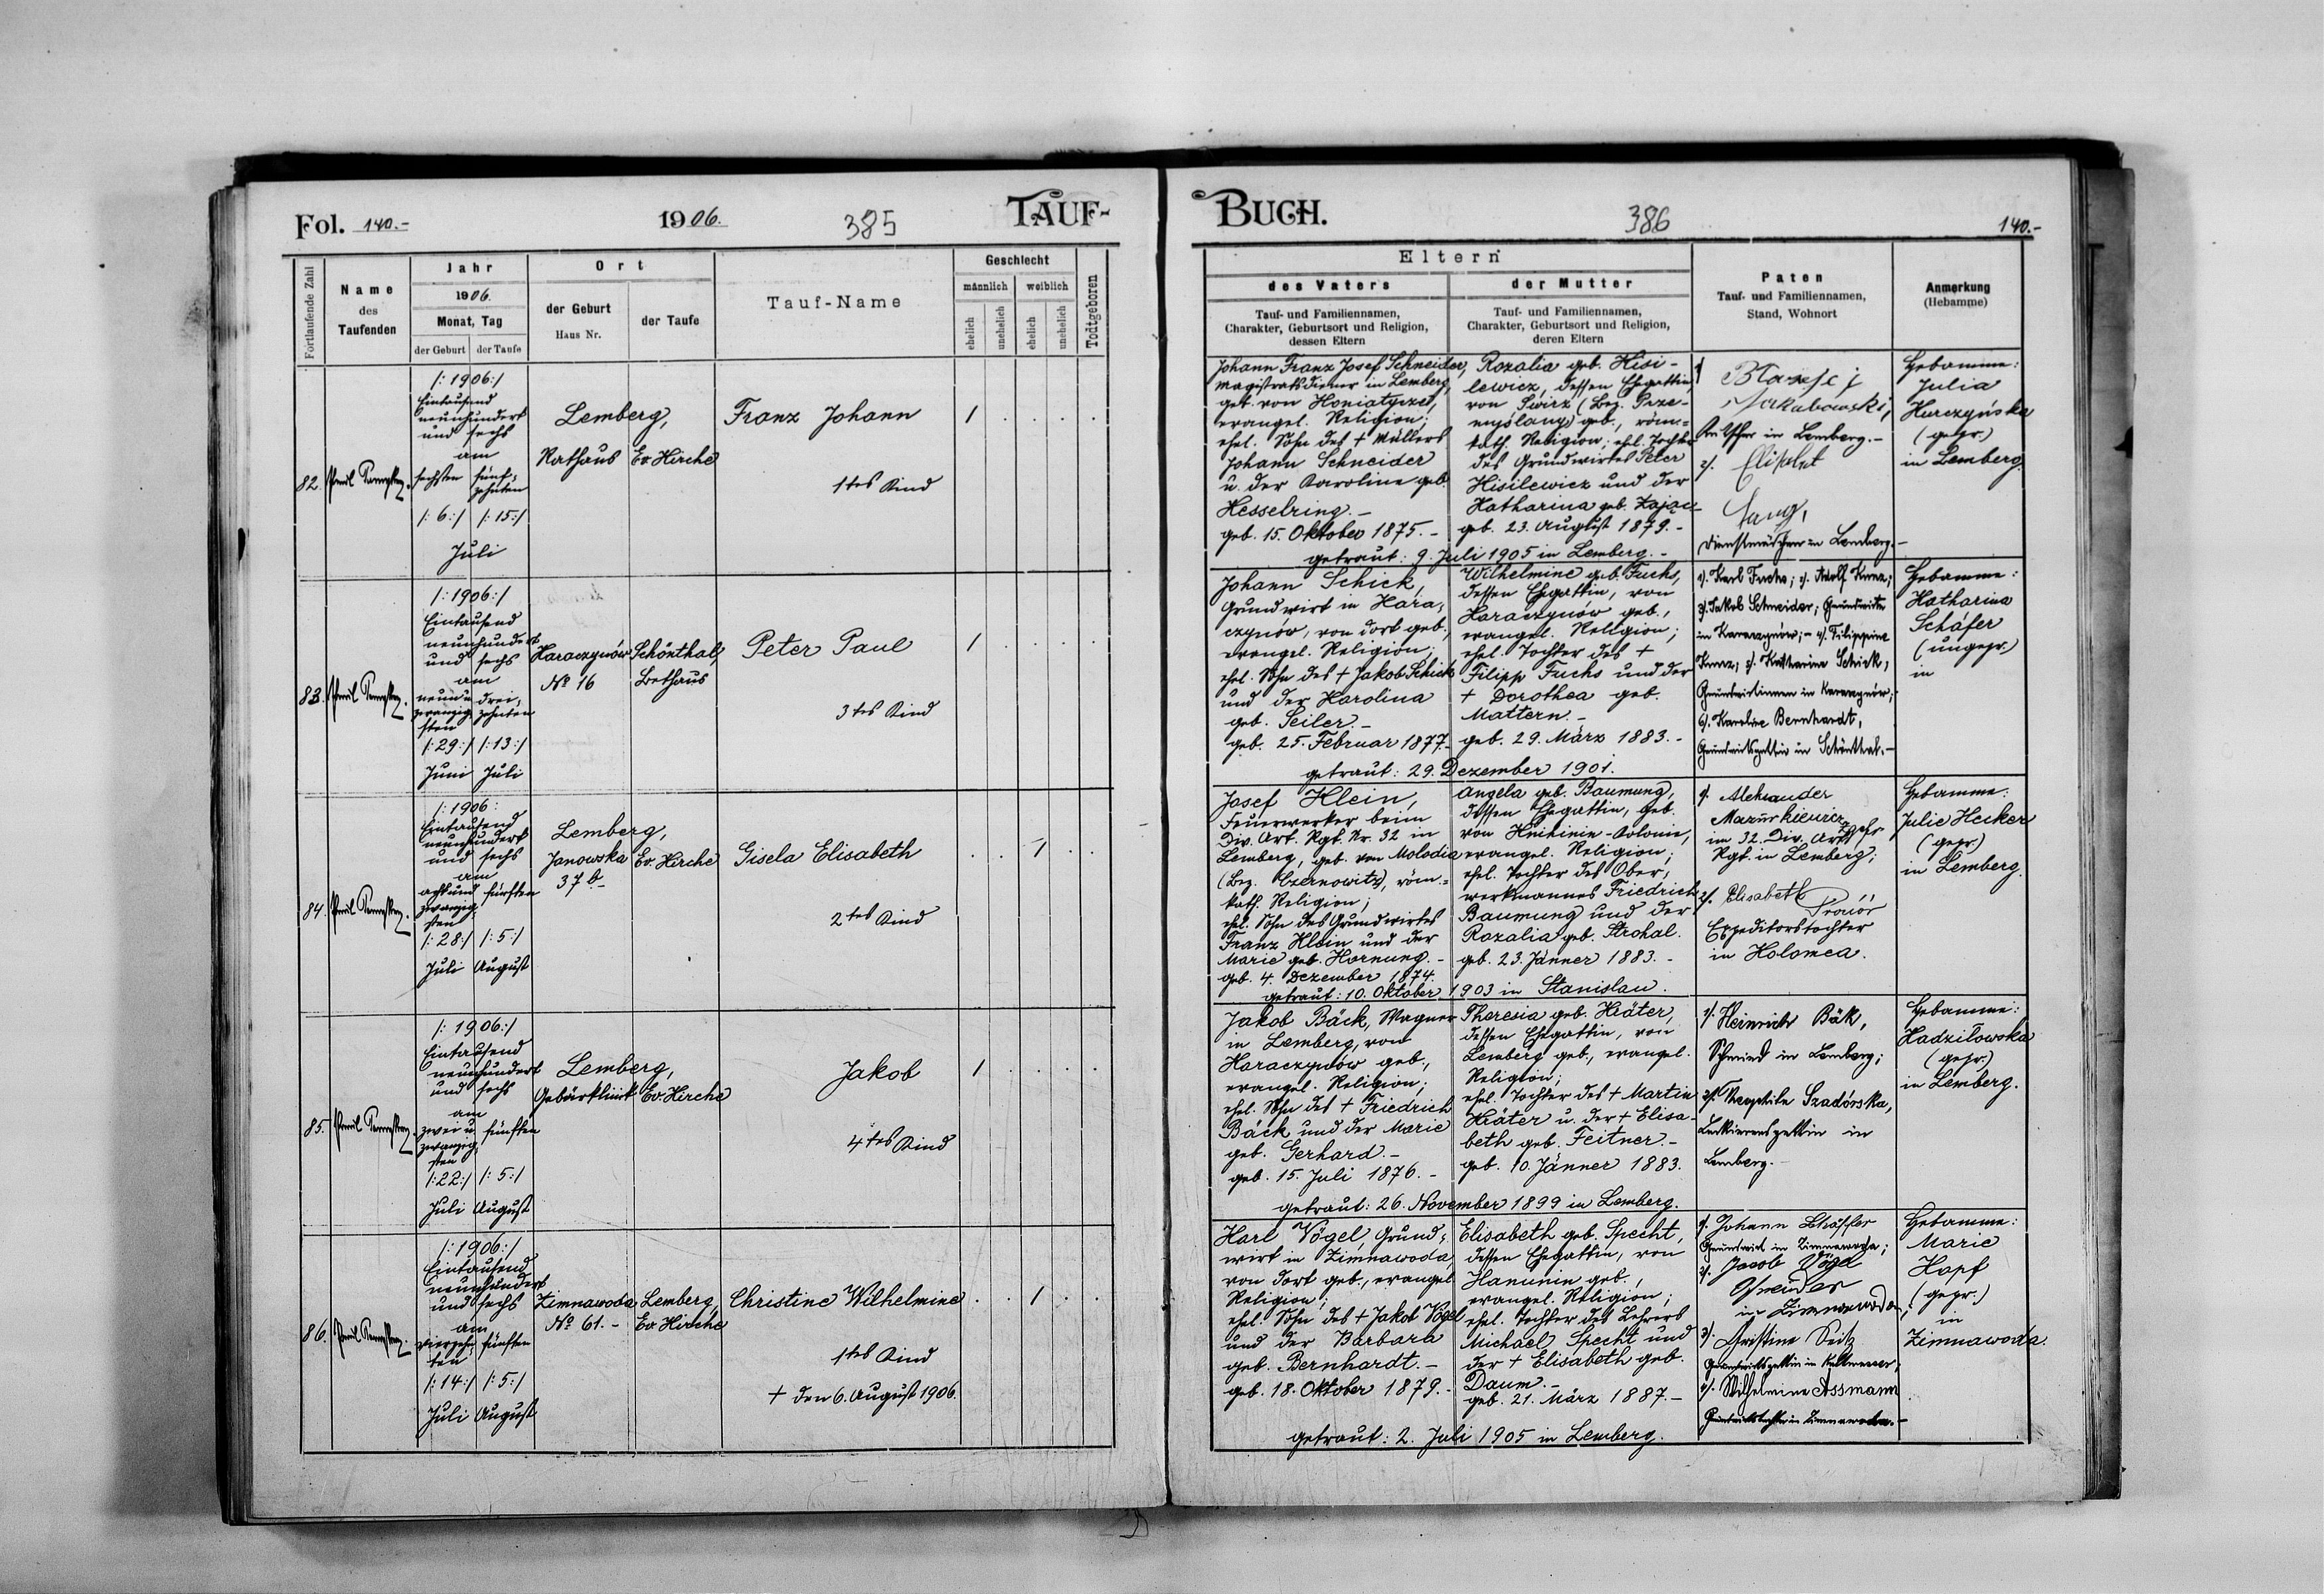 Fol. 140.-
1906.
385
TAUF-
Fortlaufende Zahl
Name
des
Taufenden
Jahr
1906.
Monat, Tag
der Geburt
der Taufe
Ort
der Geburt
Haus Nr.
der Taufe
Tauf-Name
Geschlecht
männlich
weiblich
ehelich
unehelich
ehelich
unehelich
Todtgeboren
82.
/:1906:/
Eintausend
neunhundert
und sechs
am
sechsten
fünf-
zehnten
/:6:/ /:15:/
Juli
Lemberg,
Rathaus
Ev. Kirche
Franz Johann
1tes Kind
1
83.
/:1906:/
Eintausend
neunhundert
und sechs
am
neun u.
zwanzig
sten
drei,
zehnten
/:29:/ /:13:/
Juni Juli
Karaczynów
Nº 16
Schönthal,
Bethaus
Peter Paul
3tes Kind
1
84.
/:1906:
Eintausend
neunhundert
und sechs
am
acht und
zwanzig
sten
fünften
/:28:/ /:5:/
Juli August
Lemberg,
Janowska
37
Ev. Kirche
Gisela Elisabeth
2tes Kind
1
85.
/:1906:/
Eintausend
neunhundert
und sechs
am
zwei u.
zwanzig
sten
fünften
/:22:/ /:5:/
Juli August
Lemberg,
Gebärklinik
Ev. Kirche
Jakob
4tes Kind
1
86.
/:1906:/
Eintausend
neunhundert
und sechs
am
vierzehn
ten
fünften
/:14:/ /:5:/
Juli August
Zimnawoda
Nº 61.-
Lemberg,
Ev. Kirche
Christine Wilhelmine
1tes Kind
† den 6. August 1906.
1
BUCH.
386
140.-
Eltern
des Vaters
Tauf- und Familiennamen,
Charakter, Geburtsort und Religion,
dessen Eltern
der Mutter
Tauf- und Familiennamen,
Charakter, Geburtsort und Religion,
deren Eltern
Paten
Tauf- und Familiennamen,
Stand, Wohnort
Anmerkung
(Hebamme)
Johann Franz Josef Schneider,
Magistratsdiener in Lemberg,
geb. von Honiatycze,
evangel. Religion;
ehel. Sohn des † Müllers
Johann Schneider
u. der Karoline geb.
Hesselring.-
geb. 15. Oktober 1875.-
Rozalia geb. Kisi-
lewicz, dessen Ehegattin
von Swirz (Bez. Prze-
myślany) geb., röm.-
kath. Religion; ehel. Tochter
des Grundwirtes Peter
Kisilewicz und der
Katharina geb. Zając
geb. 23. August 1879.-
getraut: 9. Juli 1905 in Lemberg.-
Jakubowski,
Kutscher in Lemberg.-
2/.
Lang,
Dienstmädchen in Lemberg.-
Hebamme:
Julia
Hurczyńska
(gepr.)
in Lemberg.
Johann Schick,
Grundwirt in Kara,
czynów, von dort geb.,
evangel. Religion;
ehel. Sohn des † Jakob Schick
und der Karolina
geb. Seiler.-
geb. 25. Februar 1877.-
Wilhelmine geb. Fuchs,
dessen Ehegattin, von
Karaczynów geb.,
evangel. Religion;
ehel. Tochter des †
Filipp Fuchs und der
† Dorothea geb.
Mattern.-
geb. 29. März 1883.-
getraut: 29. Dezember 1901.
1/. Karl Fuchs; 2/. Adolf Kunz;
3/. Jakob Schneider; Grundwirte
in Karaczynów;- 4/. Filippine
Kunz; 5/. Katharine Schick,
Grundwirtinnen in Karaczynów;
6/. Karoline Bernhardt,
Grundwirtsgattin in Schönthal.-
Hebamme:
Katharina
Schäfer
(ungepr.)
in
Josef Klein,
Feuerwerker beim
Div. Art. Rgt. Nr. 32 in
Lemberg, geb. von Molodia
(Bez. Czernowitz), röm.-
kath. Religion;
ehel. Sohn des Grundwirtes
Franz Klein und der
Marie geb. Hornung.-
geb. 4. Dezember 1874.
Angela geb. Baumung,
dessen Ehegattin, geb.
von Knihinin-Kolonie,
evangel. Religion;
ehel. Tochter des Ober,
werkmannes Friedrich
Baumung und der
Rozalia geb. Strohal.
geb. 23. Jänner 1883.-
getraut: 10. Oktober 1903 in Stanislau.
1/. Aleksander
Mazurkiewicz
im 32. Div. Art.
Rgt. in Lemberg;
2/. Elisabeth
Expeditorstochter
in Kolomea.
Hebamme:
Julie Hecker
(gepr.)
in Lemberg.
Jakob Bäck, Wagner
in Lemberg, von
Karaczynów geb.,
evangel. Religion;
ehel. Sohn des † Friedrich
Bäck und der Marie
geb. Gerhard.-
geb. 15. Juli 1876.-
Theresia geb. Kräter,
dessen Ehegattin, von
Lemberg geb., evangel.
Religion;
ehel. Tochter des † Martin
Kräter u. der † Elisa-
beth geb. Feitner.-
geb. 10. Jänner 1883.
getraut: 26. November 1899 in Lemberg.
1/. Heinrich Bäk,
Schmied in Lemberg;
2/. Teophila Szadórska,
Lackierersgattin in
Lemberg.-
Hebamme:
Kadziłowska
(gepr.)
in Lemberg.
Karl Vögel, Grund-
wirt in Zimnawoda,
von dort geb., evangel.
Religion;
ehel. Sohn des † Jakob Vögel
und der Barbara
geb. Bernhardt.-
geb. 18. Oktober 1879.-
Elisabeth geb. Specht,
dessen Ehegattin, von
Hanunin geb.,
evangel. Religion;
ehel. Tochter des Lehrers
Michael Specht und
der † Elisabeth geb.
Daum.-
geb. 21. März 1887.-
getraut: 2. Juli 1905 in Lemberg.
1/. Johann
Grundwirt in Zimnawoda;
2/. Jacob Vögel
in Zimnawoda,
3/. Christine Seitz
4/. Wilhelmine Assmann
Grundwirtstochter in Zimnawoda.-
Hebamme:
Marie
Hopf
(gepr.)
in
Zimnawoda.